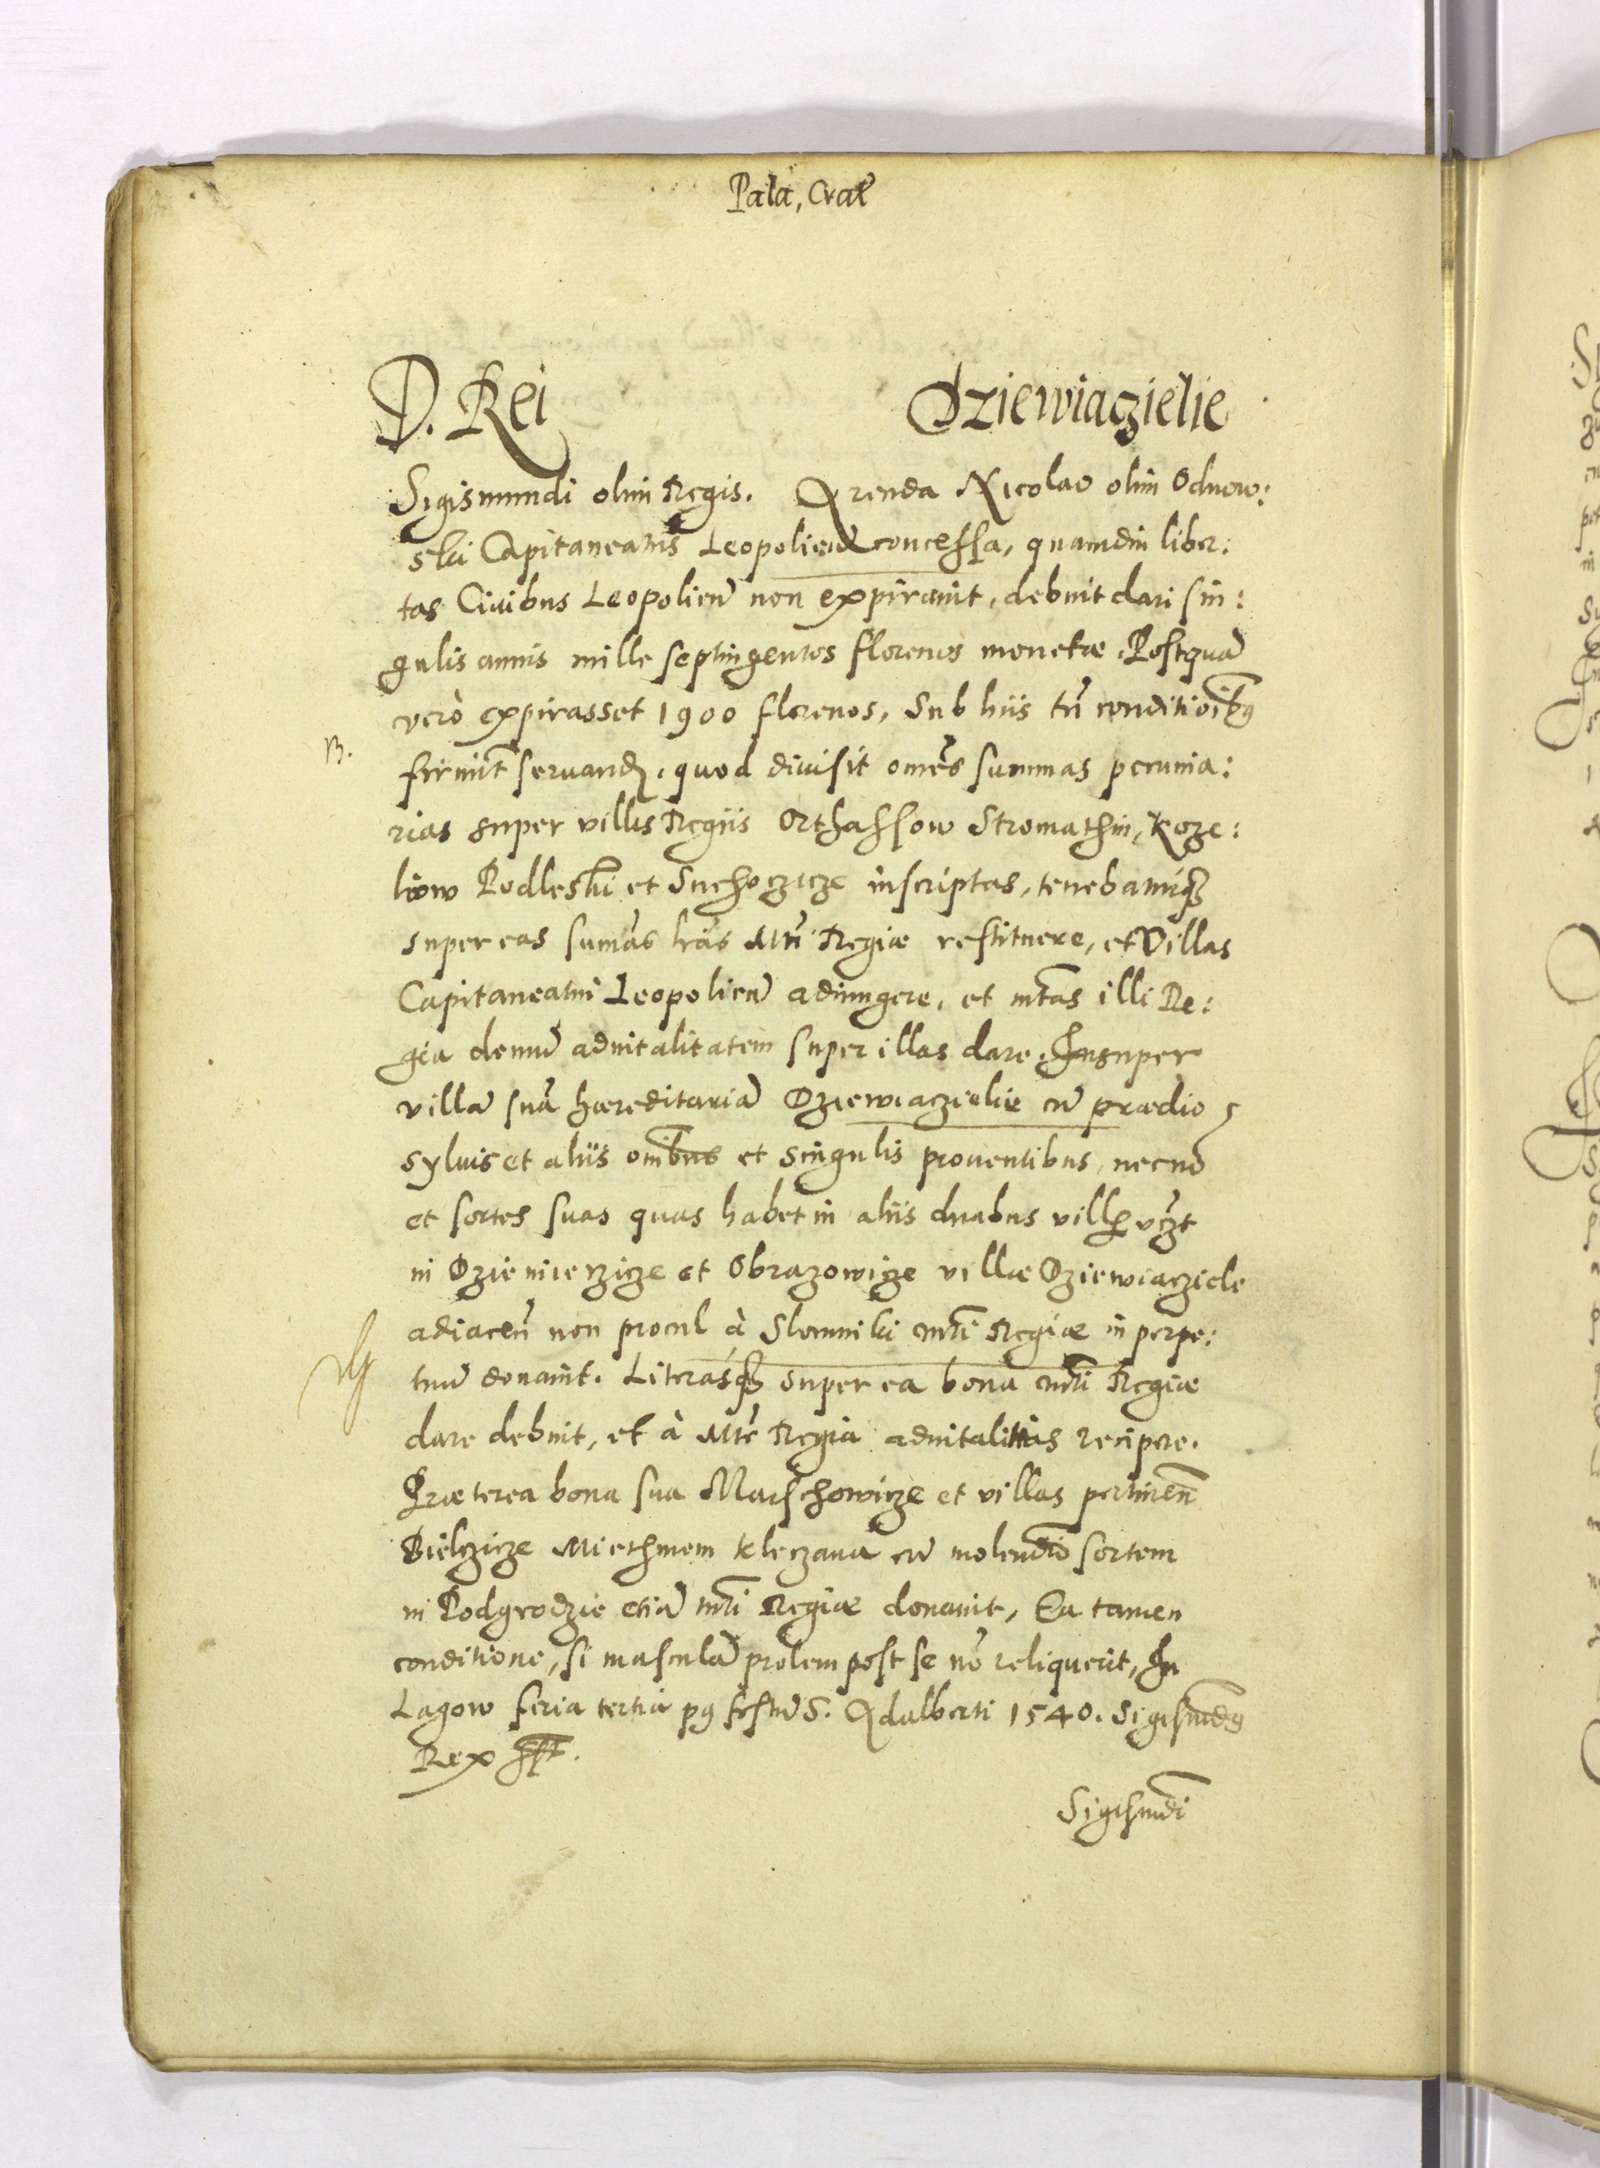 Pala, Cracͤ
D. Rei Dziewiaczielie
Sigismundi olim Regis. Arenda Nicolao olim Odnow:
ski Capitaneatus Leopolien̄ concessa, quamdiu liber:
tas Ciuibus Leopolien̄ non expirauit, debuit dari sin:
gulis annis mille septingentos florenos monetæ. Postquā
verò expirasset 1900 florenos, Sub hiis tn̄ conditioībꝯ
firmit̄ seruand. quod diuisit omēs summas pecunia:
rias super villis Regiis Orthassow Stromathin, Koze:
liow Podleski et Suchoczicze inscriptas, tenebaturqꝫ
super eas sumās lrās Mtī Regiæ restituere, et Villas
Capitaneatui Leopolien̄ adiungere, et mtās illi Re:
gia demū aduitalitatem super illas dare. Insuper
villā suā hæreditariā Dziewiaczielie cū prædio
syluis et aliis omībus et singulis prouentibus, necnō
et sortes suas quas habet in aliis duabus vill vczt
in Dziemierzicze et Obrazowicze villæ Dziewiaczicle
adiacen̄ non procul à Slomniki mtī Regiæ in perpe:
tuū donauit. Literasqꝫ super ea bona mtī Regiæ
dare debuit, et à Mtē Regia aduitalitias recipere.
Præterea bona sua Marschowicze et villas pertinen̄
Bielczicze Miethniom Kleczana cū molendīo sortem
in Podgrodzie etiā mtī Regiæ donauit, Ea tamen
conditione, si masculā prolem post se nō reliquerit, In
Lagow feria tertia pꝯ festū S. Adalberti 1540. Sigismūdꝯ
Rex sst.
Sigismūdi